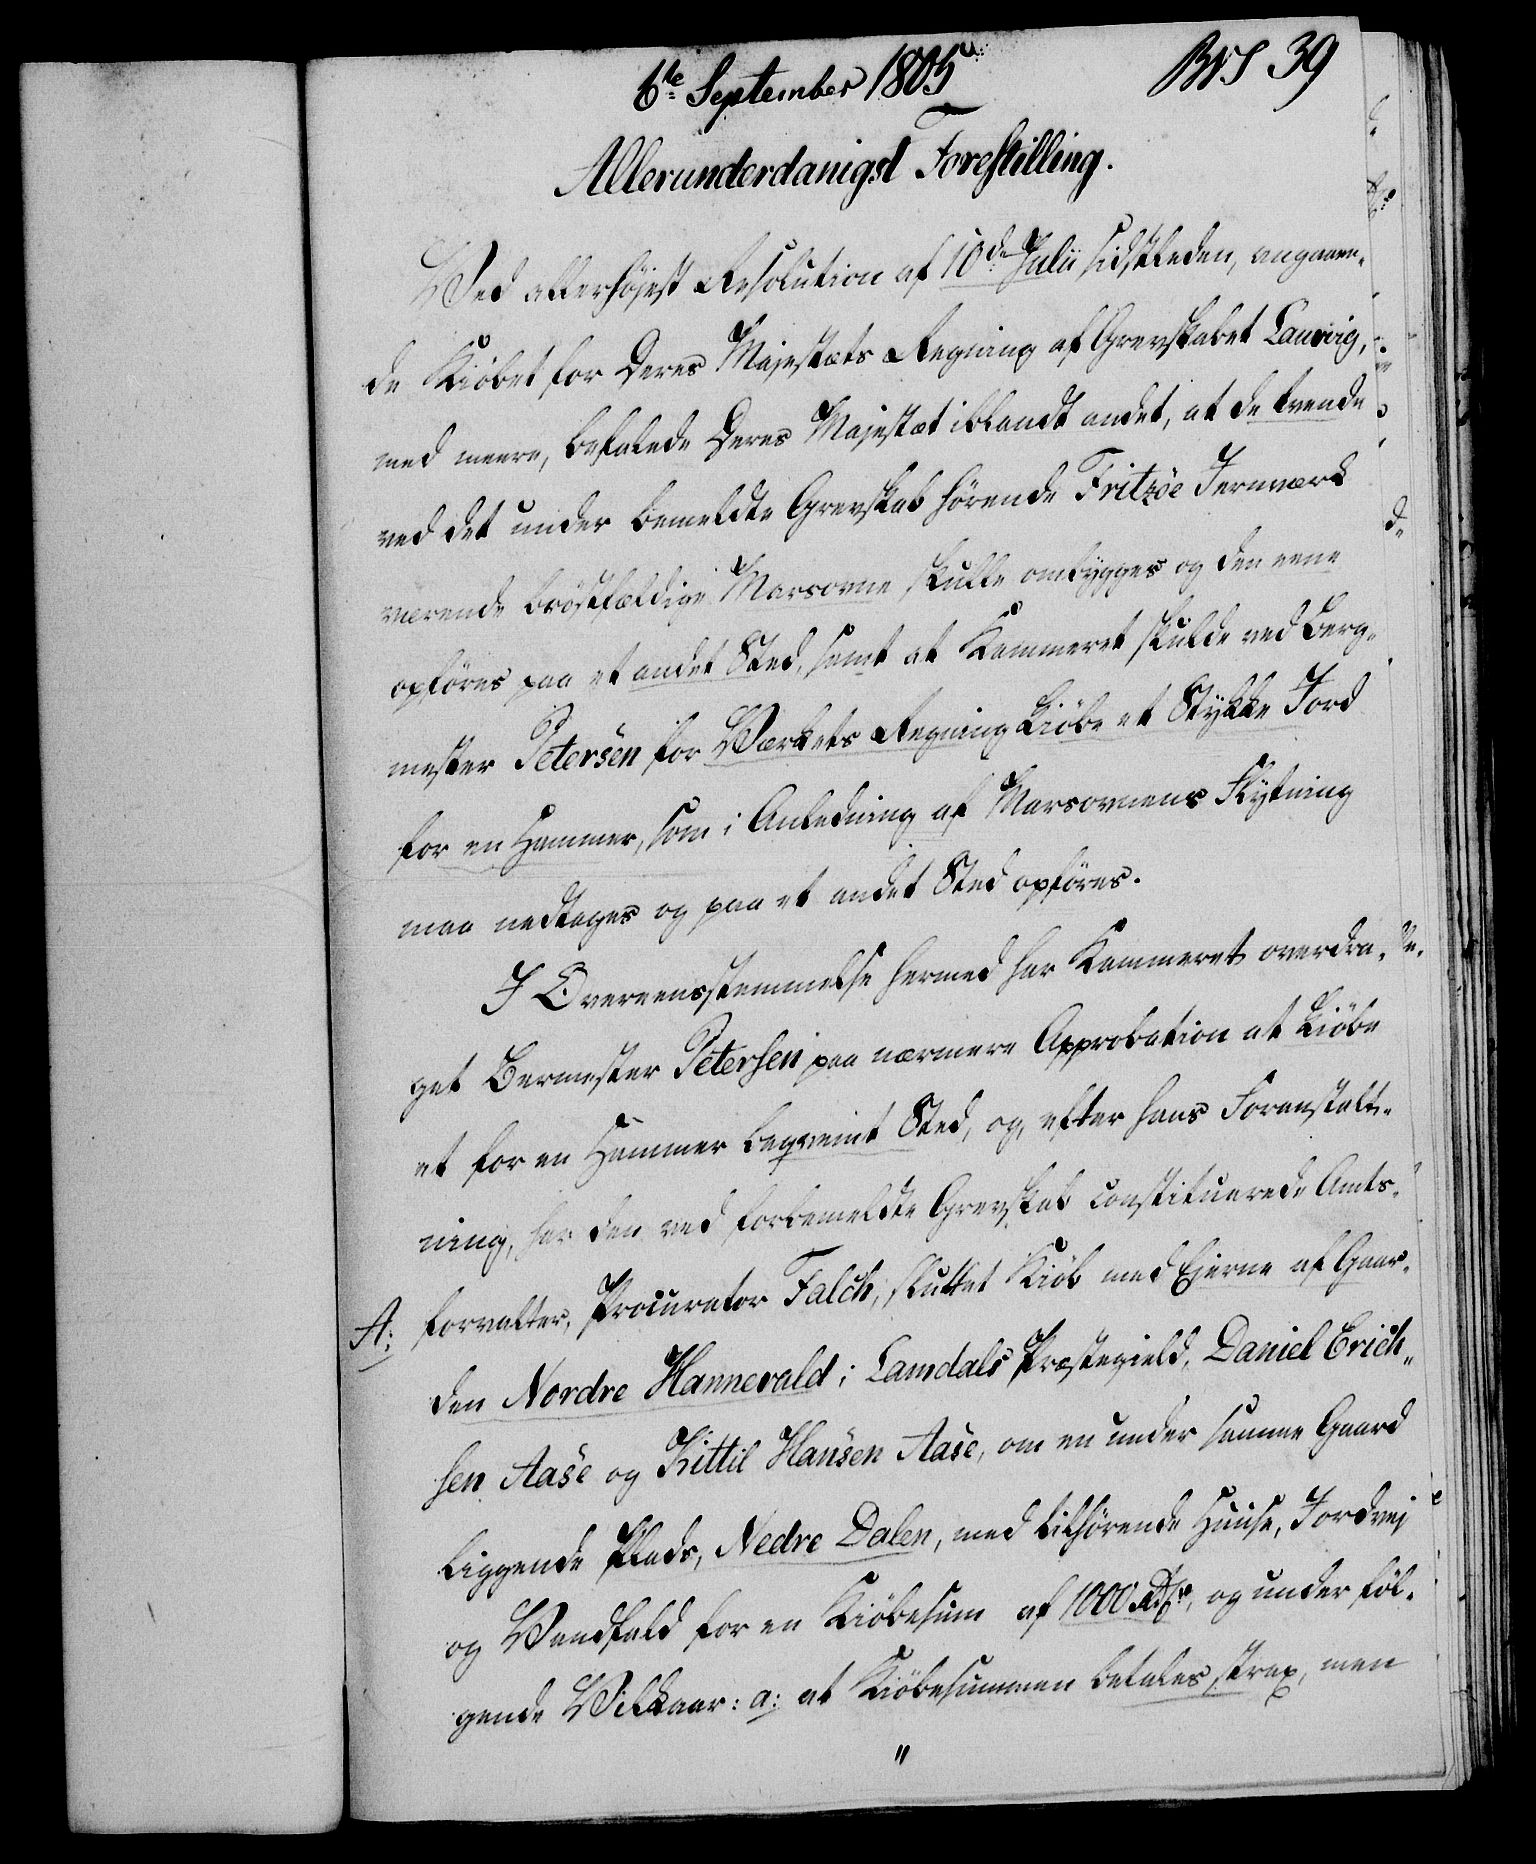 6te September 1805
Allerunderdanigst Forestilling.
Ved allerhöjest Resolution af 10de Julii sidstleden, angaaen-
de Kiöbet for Deres Majestæts Regning af Grevskabet Laurvig,
med meere, befalede Deres Majestæt iblandt andet, at de tvende
ved det under bemeldte Grevskab hörende Fritzöe Jernværk
værende bröstfældige Marsovne skulle ombygges og den eene
opföres paa et andet Sted, samt at Kammeret skulde ved Berg-
mester Petersen for Værkets Regning Kiöbe et Stykke Jord
for en Hammer, som i Anledning af Marsovnens Flytning
maa nedtages og paa et andet Sted opföres.
I Overeensstemmelse hermed har Kammeret overdra-
get Bermester Petersen paa nærmere Approbation at Kiöbe
et for en Hammer beqvemt Sted, og, efter hans Foranstalt-
ning, har den ved forbemeldte Grevskab constituerede Amts-
A: forvalter, Procurator Falch, sluttet Kiöb med Ejerne af Gaar-
den Nordre Hannevald i Lamdals Præstegield, Daniel Erich-
sen Aase og Kittil Hansen Aase, om en under samme Gaard
liggende Plads, Nedre Dalen, med tilhörende Huuse, Jordvej
og Vandfald for en Kiöbesum af 1000 Rdr, og under föl-
gende Vilkaar: a: at Kiöbesummen betales strax, men
"